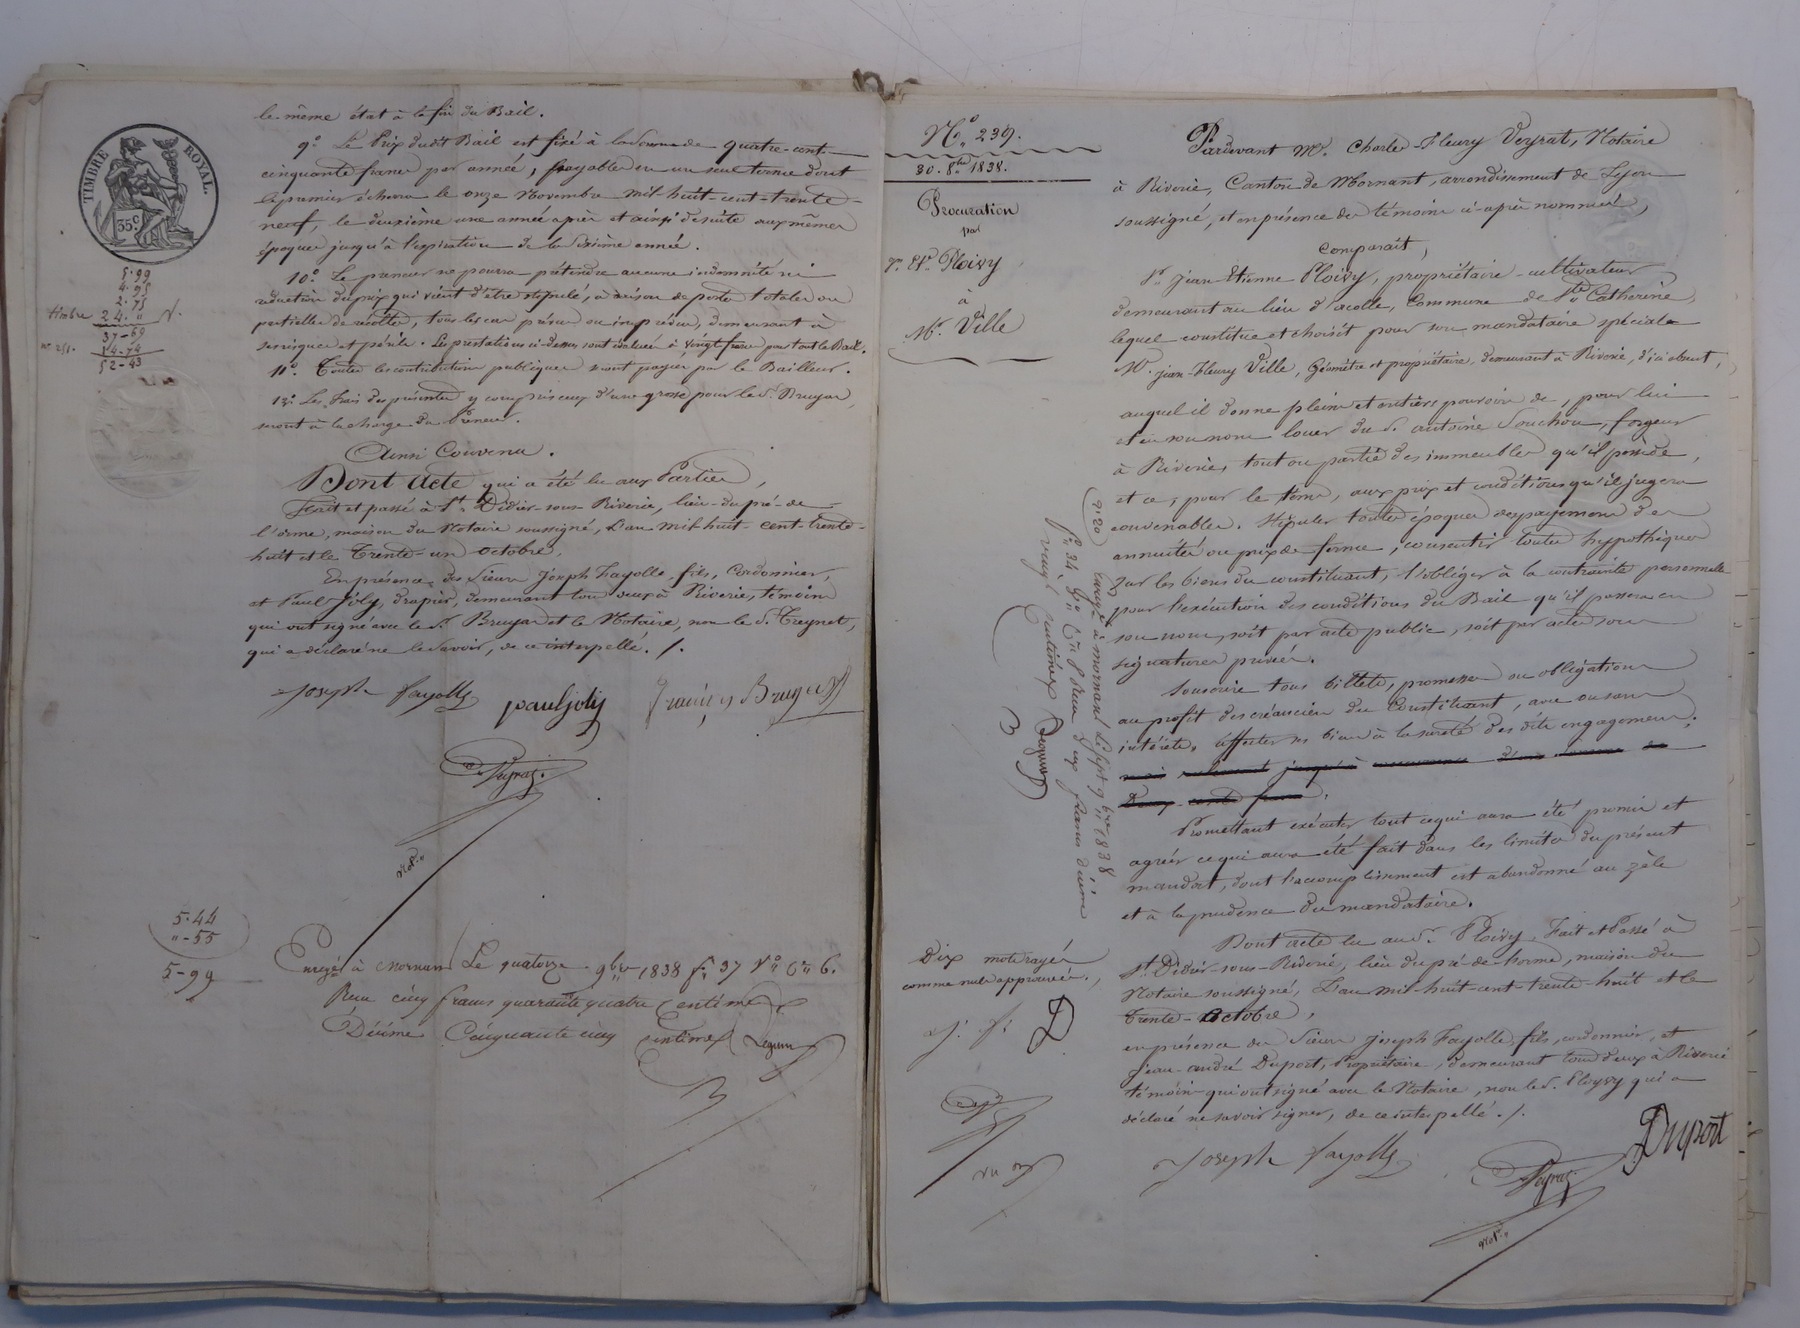 TIMBRE ROYAL.
35 c
5-99
4-95
2-75
timbre 24. "
37-69
14-74
52-43
le même état à la fin du Bail.
9.° Le Prix dudit Bail est fixé à la somme de quatre-cent-
cinquante francs par année, payables en un seul terme dont
le premier écherra le onze Novembre mil-huit-cent-trente-
neuf, le deuxième une année après et ainsi de suite aux mêmes
époques jusqu'à l'expiration de la sixième année.
10.° Le preneur ne pourra prétendre aucune indemnité ni
réduction du prix qui vient d'être stipulé, à raison de perte totale ou
partielle de récolte, tous les cas prévus ou imprévus, demeurant à
ses risques et périls. Les prestations ci-dessus sont évaluées à vingt francs pour tout le Bail.
11.° Toutes les contributions publiques seront payées par le Bailleur.
12.° Les frais des présentes y compris ceux d'une grosse pour le S. Bruyas,
seront à la charge du Preneur.
Ainsi Convenu.
Dont Acte qui a été lu aux Parties,
Fait et passé à St. Didier-sous-Riverie, lieu du pré-de-
l'orme, maison du Notaire soussigné, L'an mil-huit-cent-trente-
huit et le Trente-un octobre,
En présence des Sieurs Joseph Fayolle, fils, Cordonnier,
et Paul Joly, drapier, demeurant tous deux à Riverie, témoins
qui ont signé avec le S. Bruyas et le Notaire, non le S. Treynet,
qui a déclaré ne le savoir, de ce interpellé. /.
Joseph Fayolle
paul joly
Not.
5.44
"-55
5-99
Enregé à Mornant Le quatorze 9bre 1838 f° 37 V° C° 6.
Reçu cinq francs quarante quatre Centimes
Décime Cinquante cinq centimes
N° 239.
30. 8bre 1838.
Procuration
par
Jn. Et. Ploivy
à
Mr. Ville
Pardevant Me. Charles-Fleury Veyrat, Notaire
à Riverie, Canton de Mornant, arrondissement de Lyon
soussigné, et en présence des témoins ci-après nommés,
Comparait,
Sr. Jean-Etienne Ploivy, propriétaire-cultivateur
demeurant au lieu d'acolle, Commune de Ste Catherine,
lequel constitue et choisit pour son mandataire spécial
Mr. Jean-Fleury Ville, Géomètre et propriétaire, demeurant à Riverie, d'ici absent,
auquel il donne pleins et entiers pouvoirs de, pour lui
et en son nom louer du S. antoine Souchon, forgeur
à Riverie, tout ou partie des immeubles qu'il possède,
et ce, pour le tems, aux prix et conditions qu'il jugera
convenables. Stipuler toutes époques de payement des
annuités ou prix de ferme, consentir toutes hypothèques
sur les biens du constituant, l'obliger à la contrainte personnelle
pour l'exécution des conditions du Bail qu'il passera en
son nom, soit par acte public, soit par acte sous
signatures privées.
Souscrire tous billets, promesses ou obligations
au profit des créanciers du Constituant, avec ou sans
intérêts, affecter ses biens à la sureté des dits engagemens,
Promettant exécuter tout ce qui aura été promis et
agréer ce qui aura été fait dans les limites du présent
mandat, dont l'accomplissement est abandonné au zèle
et à la prudence du mandataire.
Dont acte lu au S. Ploivy, Fait et Passé à
St. Didier-sous-Riverie, lieu du pré-de-l'orme, maison du
Notaire soussigné, L'an mil-huit-cent-trente-huit et le
Trente-Octobre,
en présence des Sieurs Joseph Fayolle fils, cordonnier, et
Jean-andré Dupont, Propriétaire, demeurant tous deux à Riverie
témoins qui ont signé avec le Notaire, non le S. Ployvy qui a
déclaré ne savoir signer, de ce interpellé. /.
Joseph Fayolle
Dupont
Not.
2.20
Enregé à Mornant Le sept 9bre 1838
f° 34 V° C° 8 Reçu deux francs décime
vingt centimes
Dix mots rayés
comme nuls approuvés.
J. f. D